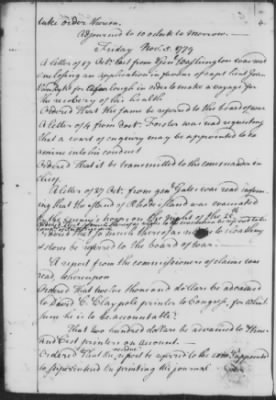 take order thereon. 4
Adjourned to 10 o'Clock to Morrow.
Friday Nov. 5. 1779
A letter of 27 Oct. last from Gen Washington was read
enclosing an application in favour of capt lieut
for leave to in order to make a voyage for
the recovery of his health
Ordered That the same be referred to the board of war
A letter of 4 from Forster was read requesting
that a court of enquiry may be appointed to ex
amine into his conduct
Ordered That it be transmitted to the commander in
chief.
A letter of 27 Oct. from gen Gates was read inform
ing that the island of Rhode island was evacuated
by the enemy's troops on the night of the 25th
Ordered That so much thereof as relates to cloathing
stores be referred to the board of war.
A report from the commissioners of claims was
read, whereupon
Ordered That twelve thousand dollars be advanced
to David C. Claypole printer to Congress, for what
sum he is to be accountable:
That two hundred dollars be advanced to Hall
and printers on account.
Ordered That the report be referred to the com appointed
to superintend the printing the journal